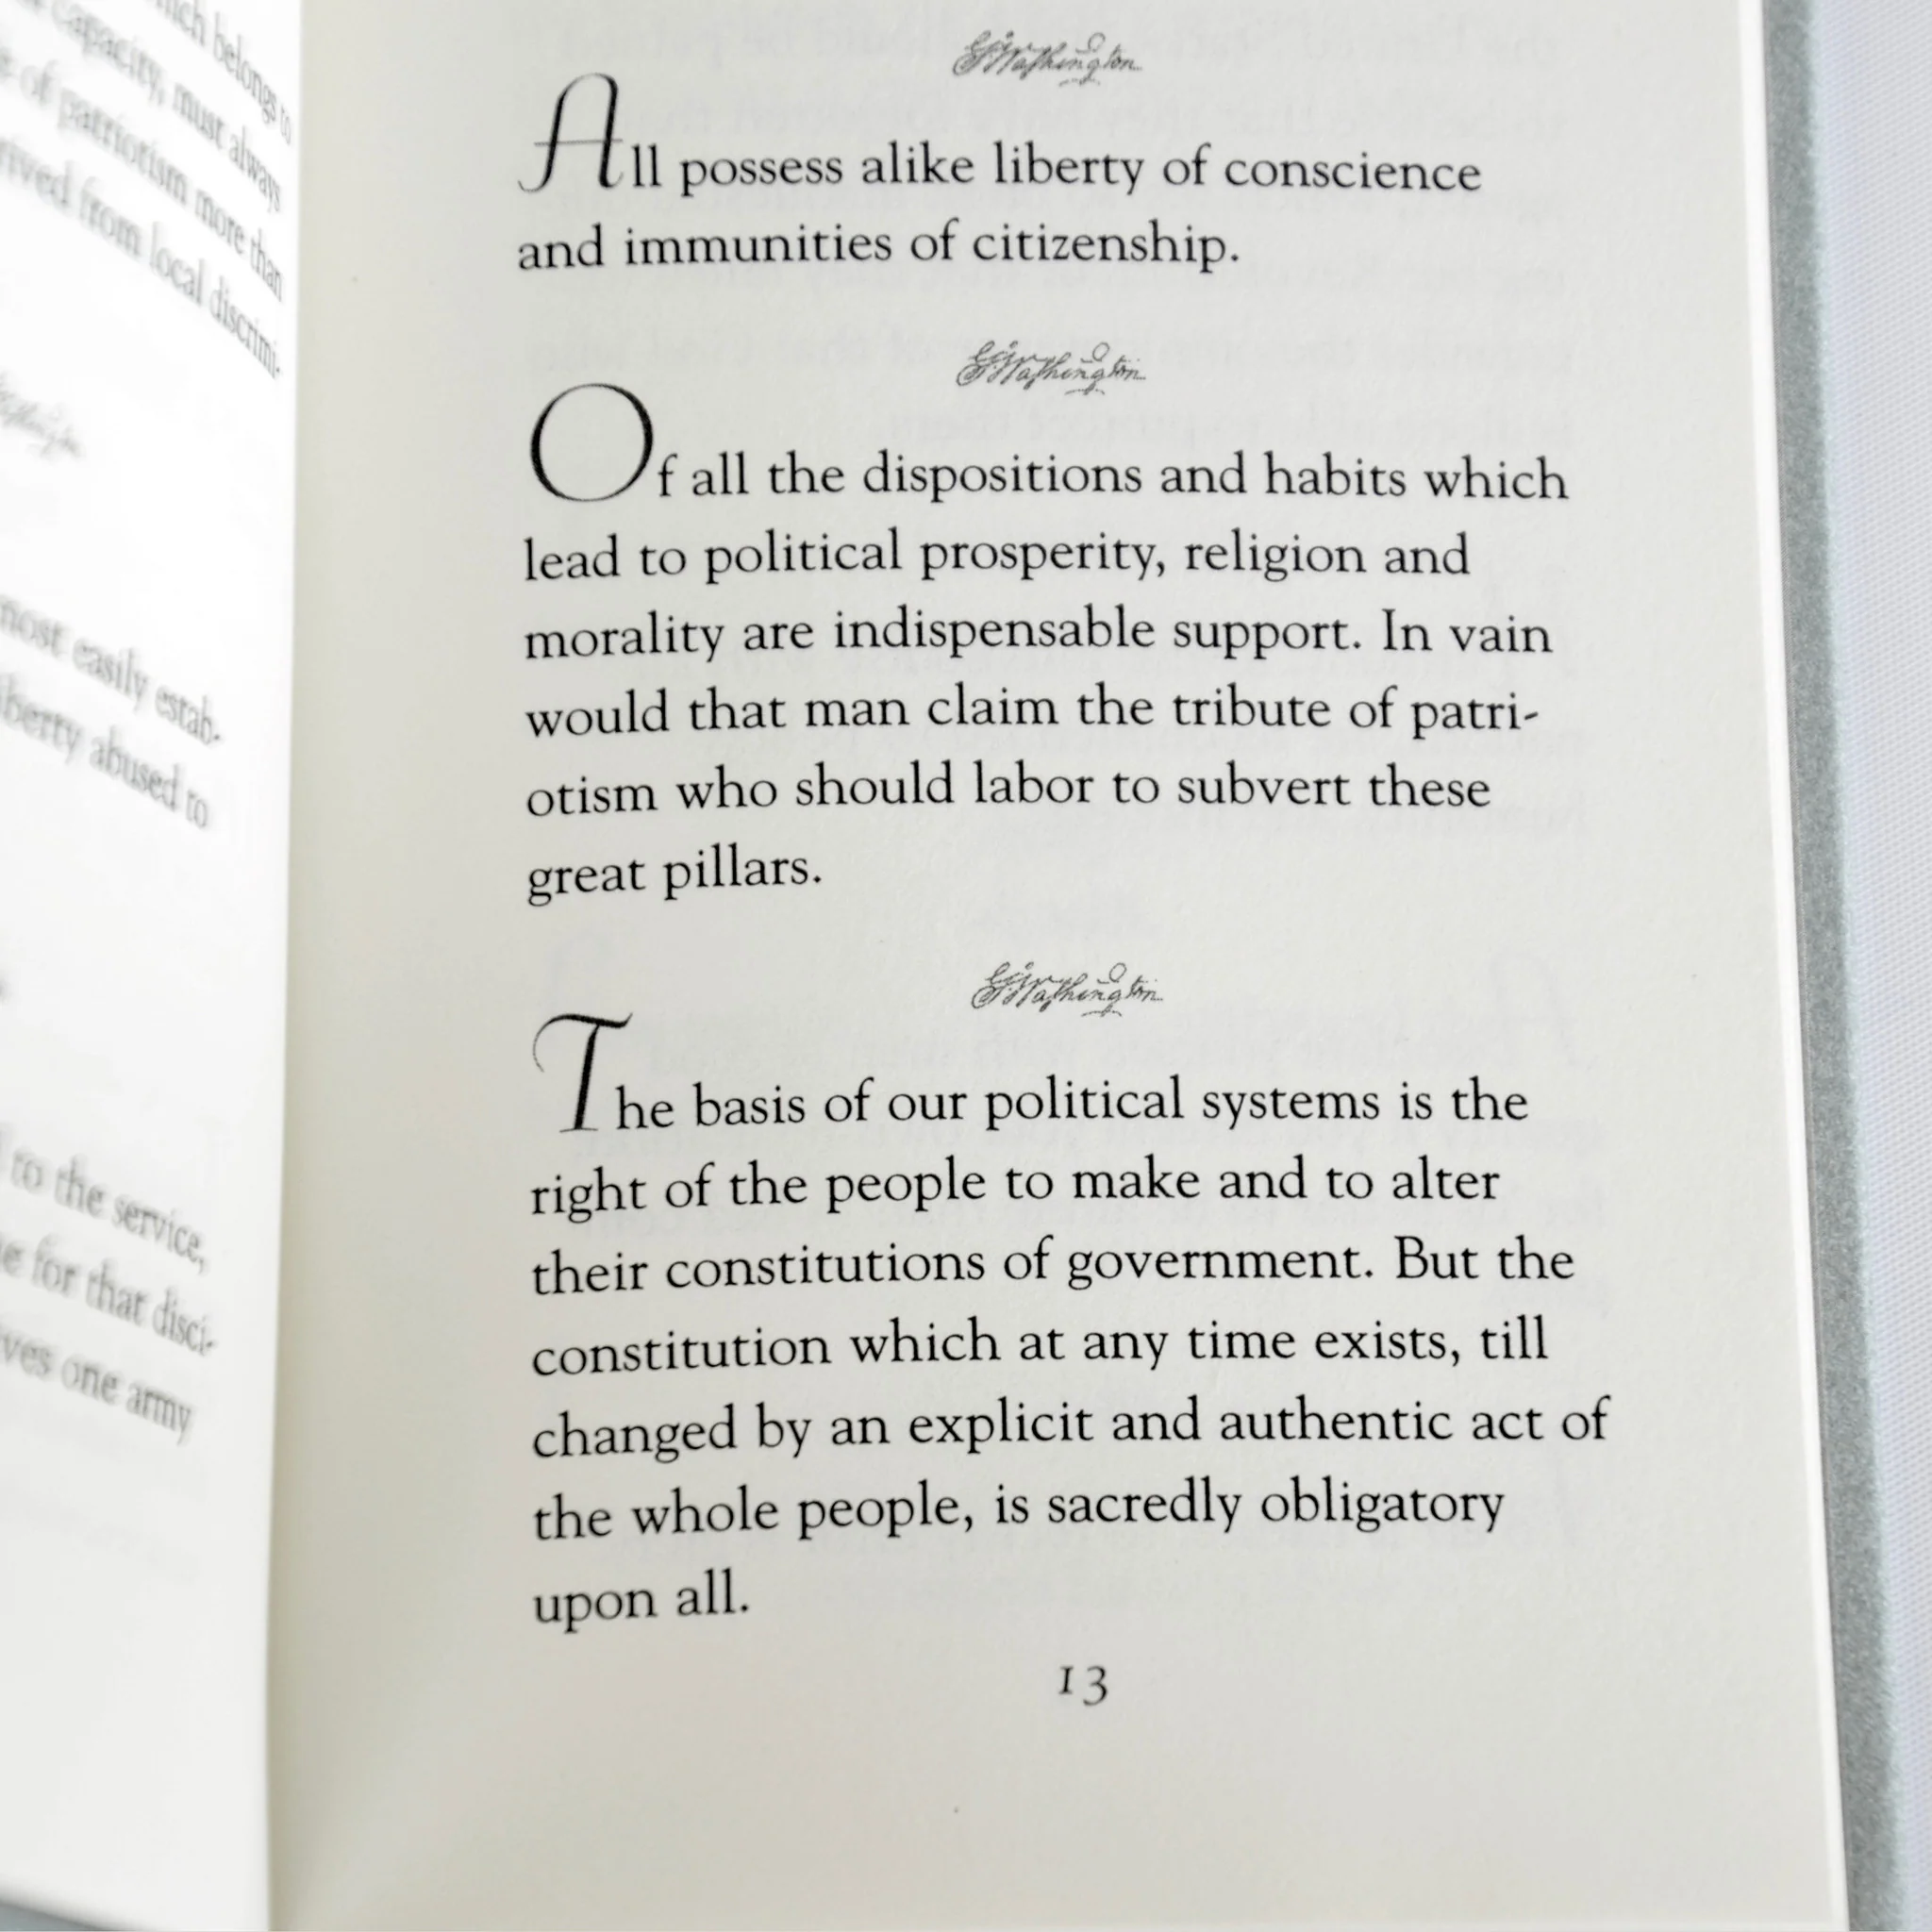 which belongs to
Capacity, must always
of patriotism more than
rived from local discrimi-
most easily estab-
liberty abused to
to the service,
for that disci-
ves one army
G:Washington
All possess alike liberty of conscience
and immunities of citizenship.
G:Washington
Of all the dispositions and habits which
lead to political prosperity, religion and
morality are indispensable support. In vain
would that man claim the tribute of patri-
otism who should labor to subvert these
great pillars.
G:Washington
The basis of our political systems is the
right of the people to make and to alter
their constitutions of government. But the
constitution which at any time exists, till
changed by an explicit and authentic act of
the whole people, is sacredly obligatory
upon all.
13